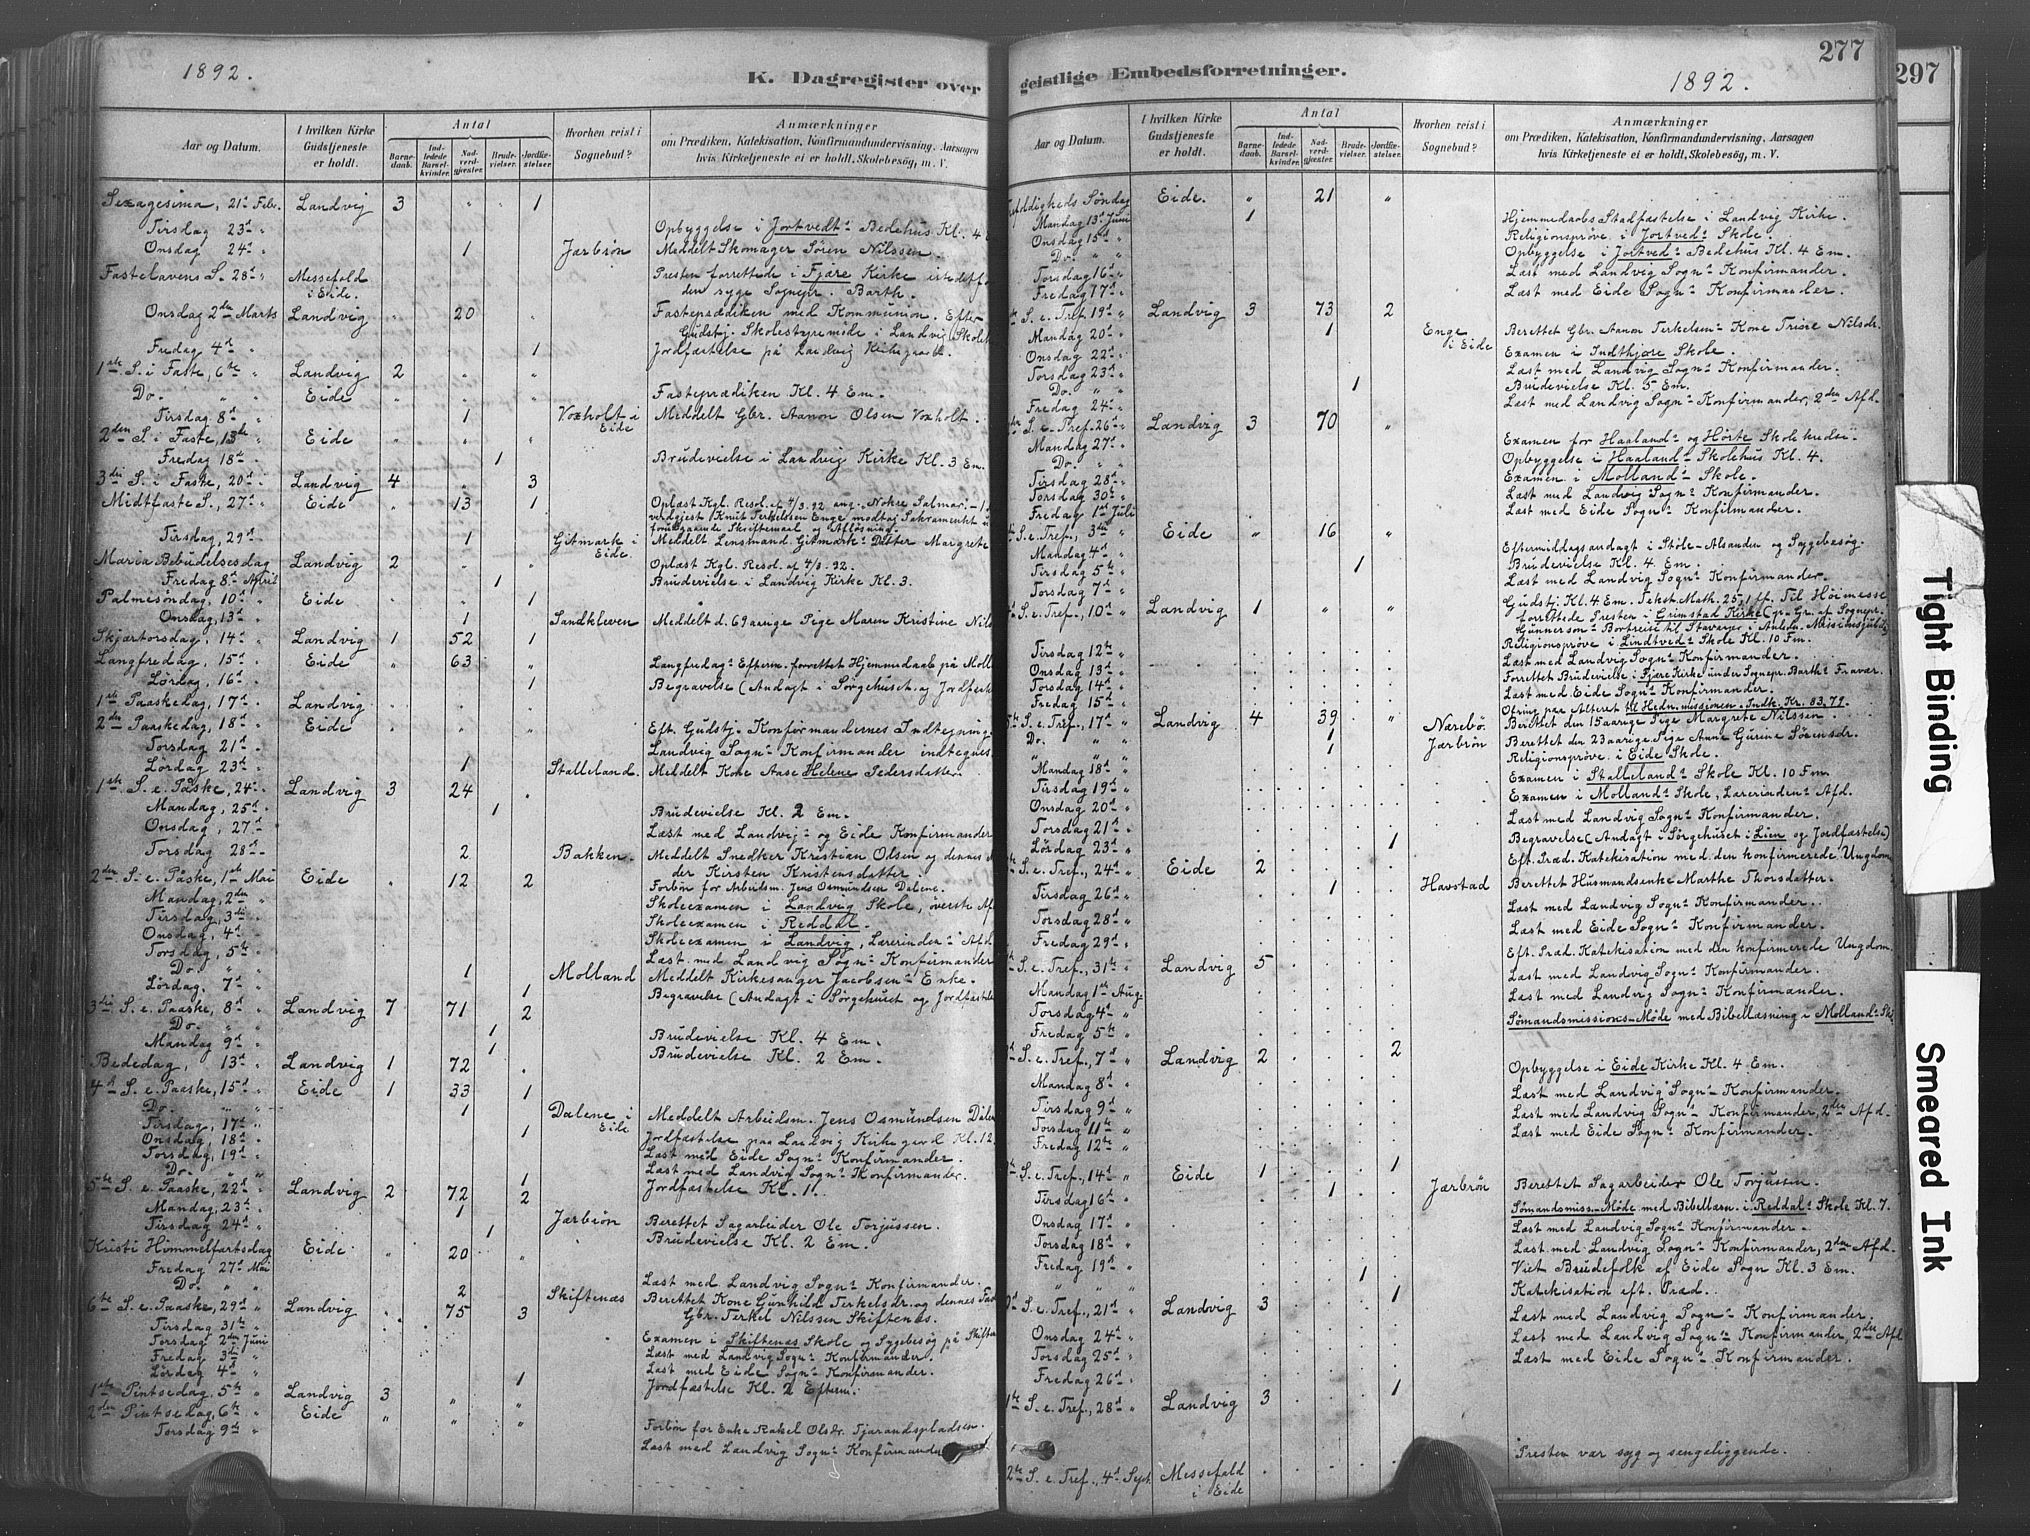 1892.
K. Dagregister over
Aar og Datum.
I hvilken Kirke Gudstjeneste er holdt.
Antal
Barnedaab.
Indledede Barselkvinder.
Nadverdgjæster.
Brudevielser.
Jordfæstelser.
Hvorhen reist i Sognebud?
Anmærkninger
om Prædiken, Katekisation, Konfirmandundervisning, Aarsagen
hvis Kirketjeneste ei er holdt, Skolebesøg, m. V.
Sexagesima, 21de Febr. Landvig 3 " " 1
Tirsdag 23d " Opbyggelse i Jortvedts Bedehus Kl. 4
Onsdag 24d " 1 Jærbrøn Meddelt Skomager Søren Nilssen.
Fastelavens S. 28d " Messefald i Eide. Presten forrettede i Fjære Kirke
den syge Sognepr. Barth.
Onsdag 2den Marts Landvig " 20 " Fasteprædiken med Kommunion. Efter
Gudstj. Skolestyremøde i Landvig
Fredag 4d " 1 Jordfæstelse på Landvig Kirkegaard.
1ste S. i Faste, 6te " Landvig 2 " "
Do. " " Eide " " " Fasteprædiken Kl. 4 Em.
Tirsdag 8d " 1 Voxholt i Eide Meddelt Gbr. Aanon Olsen Voxholt.
2den S. i Faste, 13de " Eide " " "
Fredag 18d " 1 Brudevielse i Landvig Kirke Kl. 3 Em.
3die S. i Faste, 20d " Landvig 4 " 3
Midtfaste S., 27d " Eide " 13 1 Oplæst Kgl. Resol. af 4/3.92 ang. Nokre Salmar.
Knut Terkelssen Enge modtog Sakramentet
foregaaende Skriftemaal og Afløsning.
Tirsdag, 29d " 1 Gitmark i Eide. Meddelt Lensmand Gitmarks Datter Margrete
Maria Bebudelsesdag Landvig 2 " " Oplæst Kgl. Resol. af 4/3.92.
Fredag 8d April 1 Brudevielse i Landvig Kirke Kl. 3.
Palmesøndag, 10d " Eide " " 1
Onsdag, 13d " 1 Sandkleven Meddelt d. 69 aarige Pige Maren Kristine
Skjærtorsdag, 14d " Landvig 1 52 1
Langfredag, 15d " Eide " 63 " Langfredag Efterm. forrettet Hjemmedaab på
Lørdag, 16d " 1 Begravelse (Andagt i Sørgehuset og
1ste Paaskedag, 17d " Landvig . . .
2den Paaskedag, 18d " Eide " " " Eft. Gudstj. Konfirmandernes Indtegning.
Torsdag 21d " Landvig Sogns Konfirmander
Lørdag 23d " 1 Stalleland. Meddelt Kone Aase Helene Pedersdatter.
1ste S. e. Påske, 24d " Landvig 3 24 .
Mandag, 25d " 1 Brudevielse Kl. 2 Em.
Onsdag, 27d " Læst med Landvigs og Eide Konfirmander
Torsdag 28d " 2 Bakken. Meddelt Snedker Kristian Olsen og dennes
der Kirsten Kristensdatter.
2den S. e. Påske, 1ste Mai Eide . 12 2 Forbøn for Arbeidsm. Jens Osmundsen Dalene.
Mandag, 2den " Skoleexamen i Landvig Skole, øverste
Tirsdag, 3die " Skoleexamen i Reddal.
Onsdag, 4d " Skoleexamen i Landvig, Lærerindens Afd.
Torsdag, 5te " Læst med Landvig Sogns Konfirmander
Do. " " 1 Molland Meddelt Kirkesanger Jacobsens Enke.
Lørdag, 7d " 1 Begravelse (Andagt i Sørgehuset og
3die S. e. Paaske, 8d " Landvig 7 71 2
Do. " " 1 Brudevielse Kl. 4 Em.
Mandag 9d " 1 Brudevielse Kl. 2 Em.
Bededag, 13d " Landvig 1 72 .
4d S. e. Paaske, 15d " Eide 1 33 1
Do. " " 1 Dalene i Eide Meddelt Arbeidsm. Jens Osmundsen
Tirsdag, 17d " 1 Jordfæstelse paa Landvig Kirkegaard Kl. 12.
Onsdag, 18d " Læst med Eide Sogns Konfirmander.
Torsdag, 19d " Læst med Landvig Sogns Konfirmander.
Do. " " 1 Jordfæstelse Kl. 11.
5te S. e. Paaske, 22d " Landvig 2 72 2
Mandag, 23d " 1 Jærbrøn Berettet Sagarbeider Ole Torjussen.
Tirsdag 24d " 1 Brudevielse Kl. 2 Em.
Kristi Himmelfartsdag Eide " 20 "
Fredag 27d Mai Læst med Landvig Sogns Konfirmander.
Do. " " 2 Skiftenæs Berettet Kone Gunhild Terkelsdr. og dennes
6te S. e. Paaske, 29d " Landvig . 75 3 Gbr. Terkel Nilssen Skiftenæs.
Tirsdag 31te "
Torsdag 2den Juni Examen i Skiftenæs Skole og Sygebesøg på
Fredag 3die " Læst med Landvig Sogns Konfirmander.
Lørdag 4d " 1 Læst med Eide Sogns Konfirmander.
Jordfæstelse Kl. 2 Efterm.
1ste Pintsedag, 5te " Landvig 3 " "
2den Pintsedag, 6te " Eide " " " Forbøn for Enke Rakel Olsdr. Tjarandspladsen.
Torsdag 9de " Læst med Landvig Sogns
277
297
geistlige Embedsforretninger.
1892.
Aar og Datum.
I hvilken Kirke Gudstjeneste er holdt.
Antal
Barnedaab.
Indledede Barselkvinder.
Nadverdgjæster.
Brudevielser.
Jordfæstelser.
Hvorhen reist i Sognebud?
Anmærkninger
om Prædiken, Katekisation, Konfirmandundervisning, Aarsagen
hvis Kirketjeneste ei er holdt, Skolebesøg, m. V.
Søndag Eide. " 21 "
Mandag 13d Juni 1 Hjemmedaabs Stadfæstelse i Landvig Kirke.
Onsdag 15d " Religionsprøve i Jortveds Skole.
Do. " " Opbyggelse i Jortveds Bedehus Kl. 4 Em.
Torsdag 16d " Læst med Landvig Sogns Konfirmander.
Fredag 17d " Læst med Eide Sogns Konfirmander.
S. e. Tref. 19d " Landvig 3 73 2
Mandag 20d " 1 Enge i Eide Berettet Gbr. Aanon Terkelsens Kone
Onsdag 22d " Examen i Indthjore Skole.
Torsdag 23d " Læst med Landvig Sogns Konfirmander.
Do. " " 1 Brudevielse Kl. 5 Em.
Fredag 24d " Læst med Landvig Sogns Konfirmander, 2den Afd.
S. e. Tref. 26d " Landvig 3 70 "
Mandag 27d " Examen for Haalands og Hørte Skolekredse.
Do. " " Opbyggelse i Haalands Skolehus Kl. 4.
Tirsdag 28d " Examen i Mollands Skole.
Torsdag 30d " Læst med Landvig Sogns Konfirmander.
Fredag 1ste Juli Læst med Eide Sogns Konfirmander.
S. e. Tref., 3die " Eide " 16 "
Mandag 4d " Eftermiddagsandagt i Støle-Alsanden og Sygebesøg.
Tirsdag 5te " 1 Brudevielse Kl. 4 Em.
Torsdag 7d " Læst med Landvig Sogns Konfirmander.
S. e. Tref., 10d " Landvig 1 " " Gudstj. Kl. 4 Em. Tekst. Math. 25,1 ff. Til Høimesse
forrettede Presten i Grimstad Kirke
Gunnersons Bortreise til Stavanger i
Tirsdag 12te " Religionsprøve i Lindtveds Skole Kl. 10 Fm.
Onsdag 13d " Læst med Landvig Sogns Konfirmander.
Torsdag 14d " Forrettet Brudevielse i Fjære Kirke under Sognepr. Barths Fravær.
Fredag 15d " Læst med Eide Sogns Konfirmander.
S. e. Tref., 17d " Landvig 4 39 " Ofring paa Alteret til Hedn. missionen. Indk. Kr. 83.79.
Do. " " 1 Nærebø Berettet den 15 aarige Pige Margrete Nilssen.
" " " 1 Jærbrøn Berettet den 23 aarige Pige Anne Gurine Sørensdr.
Mandag 18d " Religionsprøve i Eide Skole.
Tirsdag 19d " Examen i Stallelands Skole Kl. 10 Fm.
Onsdag 20d " Examen i Mollands Skole, Lærerindens Afd.
Torsdag 21d " Læst med Landvig Sogns Konfirmander.
Lørdag 23d " 1 Begravelse (Andagt i Sørgehuset i Lien og Jordfæstelse)
S. e. Tref., 24d " Eide 2 Eft. Præd. Katekisation med den konfirmerede Ungdom
Tirsdag 26d " 1 Havstad Berettet Husmandsenke Marthe Thorsdatter.
Torsdag 28d " Læst med Landvig Sogns Konfirmander.
Fredag 29d " Læst med Eide Sogns Konfirmander.
S. e. Tref., 31te " Landvig 5 Eft. Præd. Katekisation med den konfirmerede Ungdom.
Mandag 1ste Aug. Læst med Landvig Sogns Konfirmander.
Torsdag 4d " Læst med Landvig Sogns Konfirmander.
Fredag 5te " Sømandsmissions-Møde med Bibellæsning i Mollands
S. e. Tref., 7d " Landvig 2 2
Mandag 8d " Opbyggelse i Eide Kirke Kl. 4 Em.
Tirsdag 9d " Læst med Landvig Sogns Konfirmander.
Torsdag 11te " Læst med Landvig Sogns Konfirmander, 2den Afd.
Fredag 12te " Læst med Eide Sogns Konfirmander.
S. e. Tref., 14d " Eide 1 1
Tirsdag 16d " 1 Jærbrøn Berettet Sagarbeider Ole Torjussen.
Onsdag 17d " Sømandsmiss.-Møde med Bibellæsn. i Reddals Skole Kl. 7.
Torsdag 18d " Læst med Landvig Sogns Konfirmander.
Fredag 19d " Læst med Landvig Sogns Konfirmander, 2den Afd.
" " 1 Viet Brudefolk af Eide Sogn Kl. 3 Em.
S. e. Tref., 21d " Landvig 3 1 Katekisation eft. Præd.
Onsdag 24d " Læst med Landvig Sogns Konfirmander.
Torsdag 25d " Læst med Landvig Sogns Konfirmander, 2den Afd
Fredag 26d " Læst med Eide Sogns Konfirmander.
S. e. Tref., 28d " Landvig 3 1
S. e. Tref., 4d Sept. Messefald i Eide Presten var syg og sengeliggende.
Tight Binding
Smeared Ink